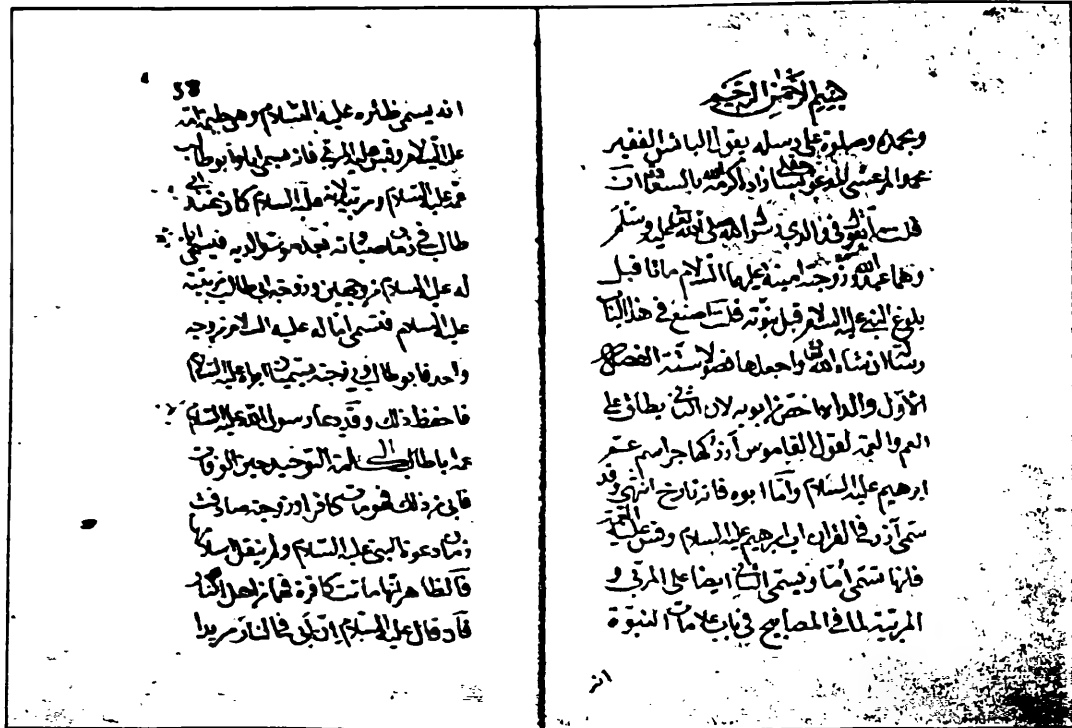 بسم الله الرحمن الرحيم
وبحمده وصلوة على رسله يقول البائس الفقير
محمد المرعشي المدعو بساجقلي زاده اكرمه الله بالسعادة ان
قلت توفي والدي رسول الله صلى الله عليه وسلم
وهما عبد الله وزوجته امينة عليهما السلام ماتا قبل
بلوغ النبي عليه السلام قبل نبوته قلت اصنع في هذا الباب
ان شاء الله واجعلها فصولا ستة الفصل
الاول والدا اخص من ابويه لان الثاني يطلق على
العم والعمة لقول القاموس آزر كهاجر اسم عم
ابرهيم عليه السلام واما ابوه فانه تارخ انتهى وقد
سمى آزر في القرآن اب ابرهيم عليه السلام وقس عليه العمة
فانها تسمى أما ويسمى ايضا على المربي و
المربية لما في المصابيح في باب علامات النبوة
انه
58
انه يسمى ظئره عليه السلام وهي حليمة امه
عليه السلام وقس عليه المربي فانه يسمى ابا وابو طالب
عمه عليه السلام ومربيه لانه عليه السلام كان عند ابي
طالب في زمان صباته بعد موت والديه فيسمى ابا
له عليه السلام من وجهين وزوجة ابي طالب مربيته
عليه السلام فتسمى اما له عليه السلام من وجه
واحد فابو طالب وزوجته يسميان ابواه عليه السلام
فاحفظ ذلك وقد دعا رسول الله عليه السلام
عمه ابا طالب الى كلمة التوحيد حين الوفات
فابى عن ذلك فهو مات كافرا وزوجته صادفت
زمان دعوة النبي عليه السلام ولم ينقل اسلامها
فالظاهر انها ماتت كافرة فهما من اهل النار
فان قال عليه السلام ان ابي في النار مريدا